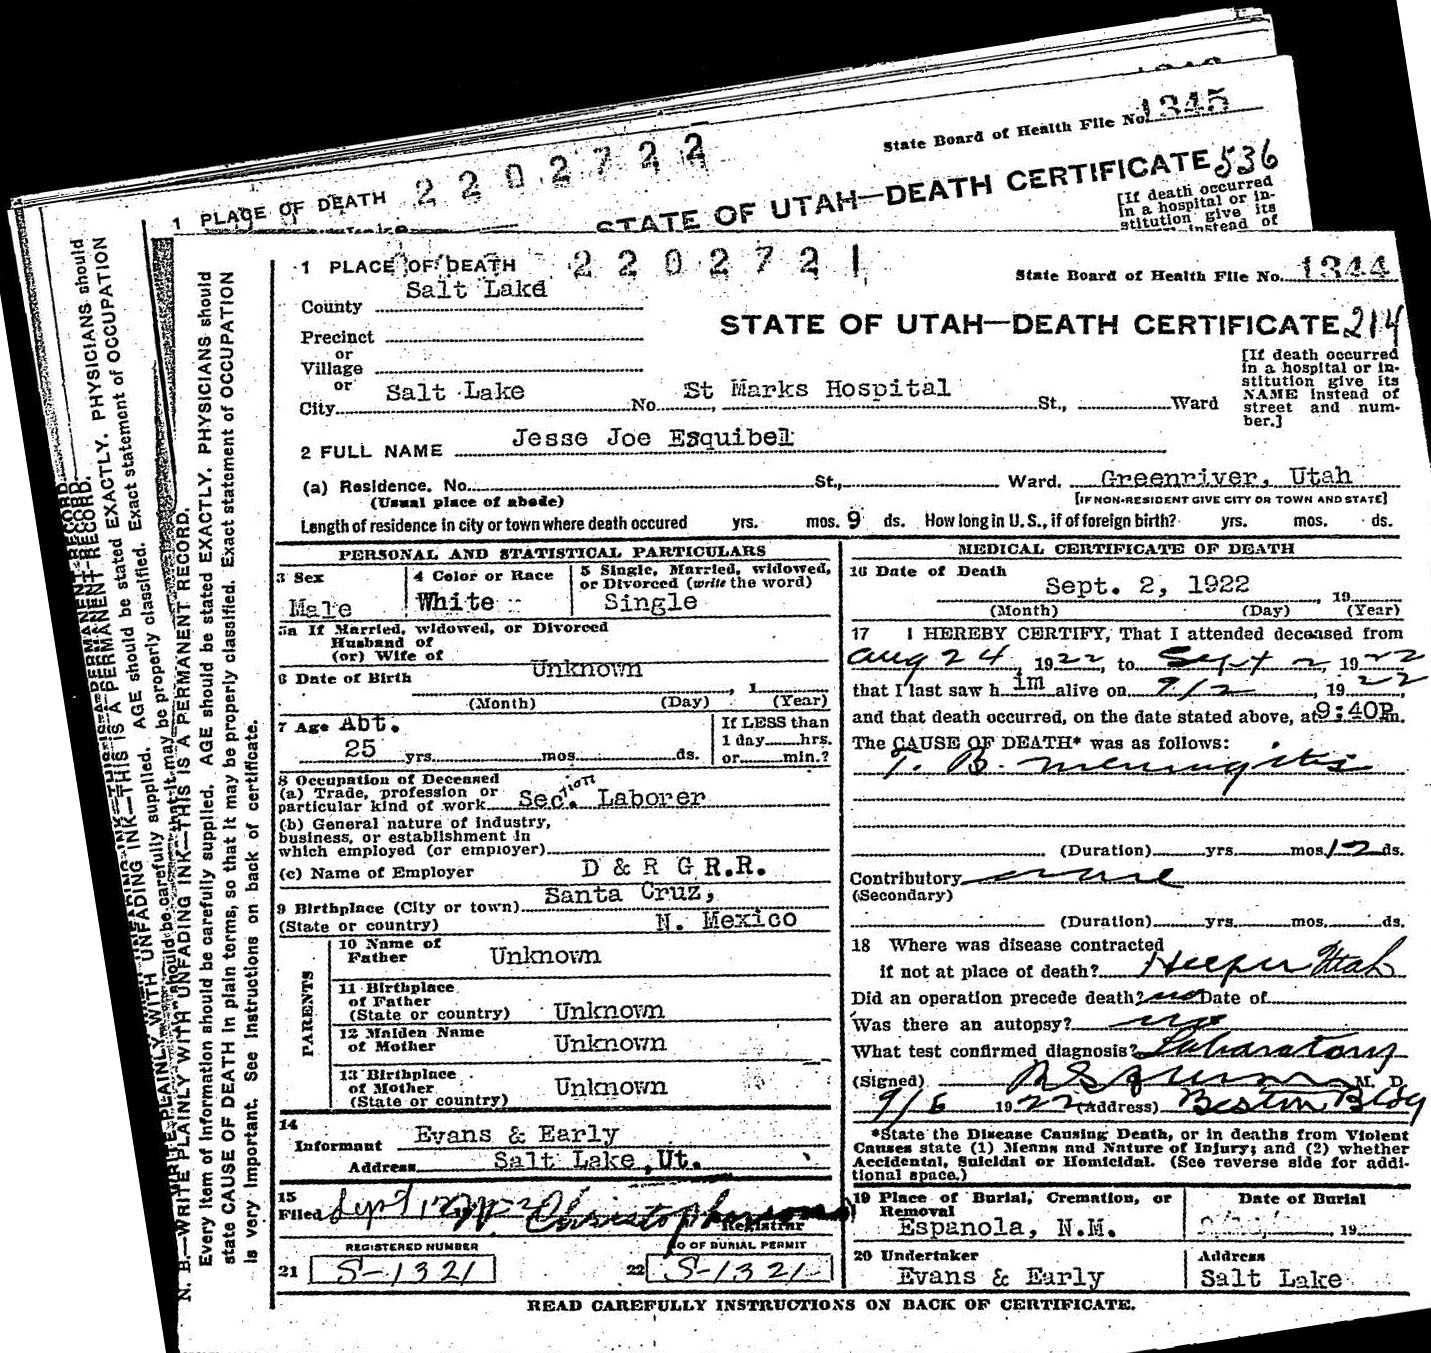 State Board of Health File No. 1345
1 PLACE OF DEATH 2202722
STATE OF UTAH—DEATH CERTIFICATE 536
[If death occurred
in a hospital or in-
stitution give its
instead of
1 PLACE OF DEATH 2202721
State Board of Health File No. 1344
County Salt Lake
STATE OF UTAH—DEATH CERTIFICATE 214
Precinct
or
Village
or
City Salt Lake No. St Marks Hospital St., Ward
[If death occurred
in a hospital or in-
stitution give its
NAME instead of
street and num-
ber.]
2 FULL NAME Jesse Joe Esquibel
(a) Residence. No. St., Ward. Greenriver, Utah
(Usual place of abode) [IF NON-RESIDENT GIVE CITY OR TOWN AND STATE]
Length of residence in city or town where death occured yrs. mos. 9 ds. How long in U. S., if of foreign birth? yrs. mos. ds.
PERSONAL AND STATISTICAL PARTICULARS
3 Sex Male
4 Color or Race White
5 Single, Married, widowed,
or Divorced (write the word)
Single
5a If Married, widowed, or Divorced
Husband of
(or) Wife of
6 Date of Birth Unknown , 1
(Month) (Day) (Year)
7 Age Abt.
25 yrs. mos. ds.
If LESS than
1 day hrs.
or min.?
8 Occupation of Deceased
(a) Trade, profession or
particular kind of work Section Laborer
(b) General nature of industry,
business, or establishment in
which employed (or employer)
(c) Name of Employer D & R G R.R.
9 Birthplace (City or town) Santa Cruz,
(State or country) N. Mexico
PARENTS
10 Name of
Father Unknown
11 Birthplace
of Father
(State or country) Unknown
12 Maiden Name
of Mother Unknown
13 Birthplace
of Mother
(State or country) Unknown
14
Informant Evans & Early
Address Salt Lake, Ut.
15
Filed Sept Christopherson
Registrar
REGISTERED NUMBER
21 S-1321
NO OF BURIAL PERMIT
22 S-1321
MEDICAL CERTIFICATE OF DEATH
16 Date of Death
Sept. 2, 1922 , 19
(Month) (Day) (Year)
17 I HEREBY CERTIFY, That I attended deceased from
Aug 24, 1922, to Sept 2, 1922
that I last saw him alive on 9/2, 1922,
and that death occurred, on the date stated above, at 9:40P.m.
The CAUSE OF DEATH* was as follows:
T. B. meningitis
(Duration) yrs. mos. 12 ds.
Contributory none
(Secondary)
(Duration) yrs. mos. ds.
18 Where was disease contracted
if not at place of death? Heeper Utah
Did an operation precede death? no Date of
Was there an autopsy? no
What test confirmed diagnosis? Laboratory
(Signed) M. D.
9/6 1922 (Address) Boston Bldg
*State the Disease Causing Death, or in deaths from Violent
Causes state (1) Menns and Nature of Injury; and (2) whether
Accidental, Suicidal or Homicidal. (See reverse side for addi-
tional space.)
19 Place of Burial, Cremation, or
Removal
Espanola, N.M.
Date of Burial
19
20 Undertaker
Evans & Early
Address
Salt Lake
READ CAREFULLY INSTRUCTIONS ON BACK OF CERTIFICATE.
N. B.—WRITE PLAINLY WITH UNFADING INK—THIS IS A PERMANENT RECORD.
Every item of information should be carefully supplied. AGE should be stated EXACTLY. PHYSICIANS should
state CAUSE OF DEATH in plain terms, so that it may be properly classified. Exact statement of OCCUPATION
is very important. See instructions on back of certificate.